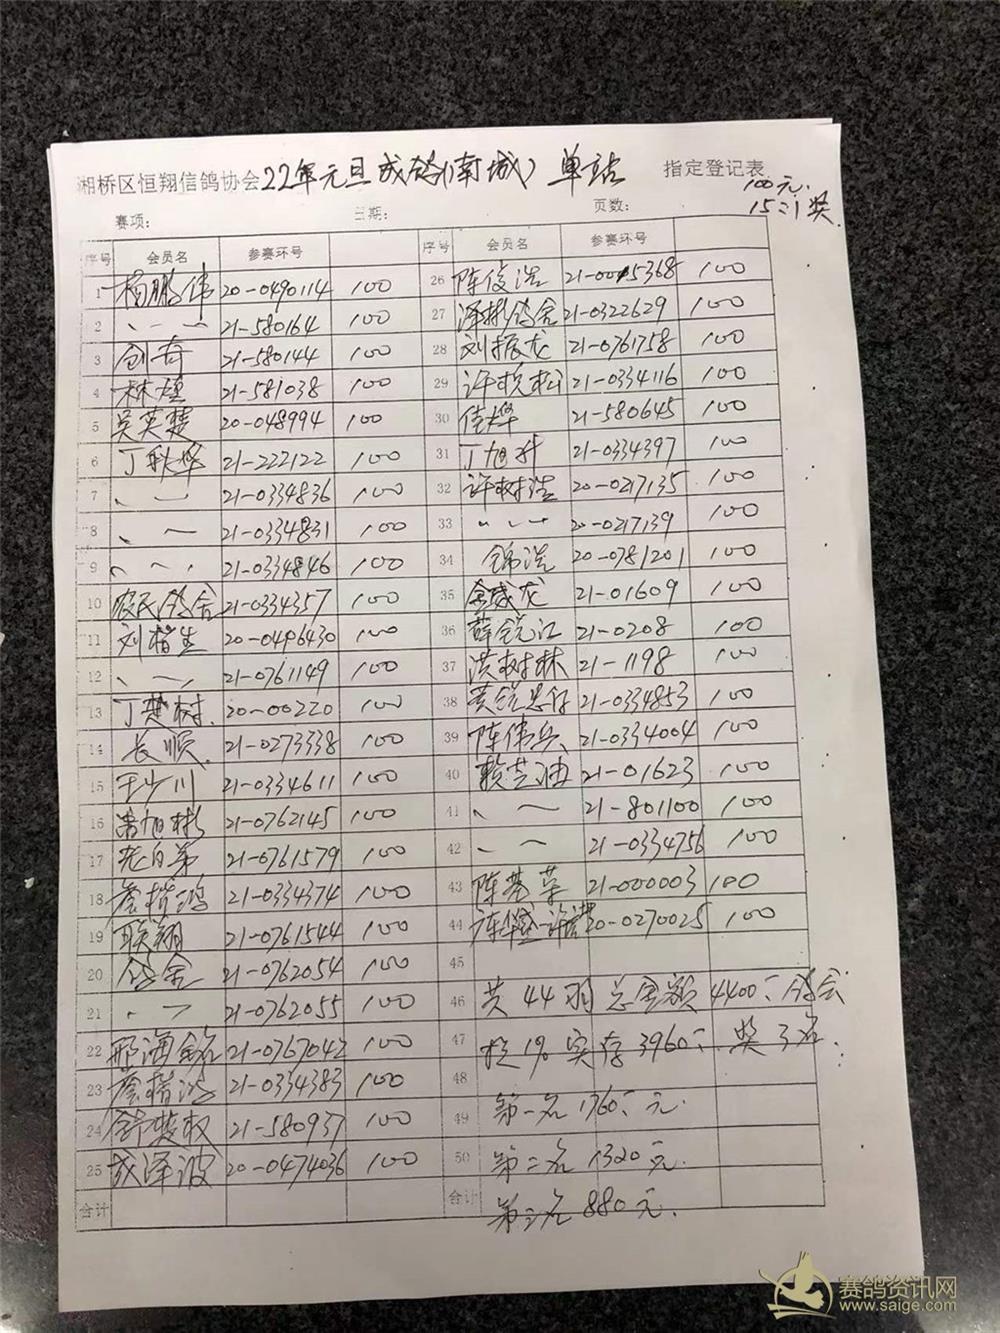 湘桥区恒翔信鸽协会22年元旦成鸽(南城)单站 指定登记表
100元.
15:1奖.
赛项: 日期: 页数:
序号 会员名 参赛环号
1 杨鹏伟 20-0490114 100
2 、一一 21-580164 100
3 创奇 21-580144 100
4 林煌 21-581038 100
5 吴英楚 20-048994 100
6 丁秋烨 21-222122 100
7 、一 21-0334836 100
8 、一 21-0334831 100
9 、一、 21-0334846 100
10 农民鸽舍 21-0334357 100
11 刘楷生 20-0496430 100
12 、一、 21-0761149 100
13 丁楚树. 20-00220 100
14 长顺. 21-0273338 100
15 王少川 21-0334611 100
16 旭彬 21-0762145 100
17 苑白第 21-0761579 100
18 詹楷鸿 21-0334374 100
19 联翔 21-0761544 100
20 鸽舍 21-0762054 100
21 、一 21-0762055 100
22 邢海铭 21-0767042 100
23 詹楷 21-0334383 100
24 舒楚权 21-580937 100
25 成泽波 20-0474036 100
合计
序号 会员名 参赛环号
26 陈俊浩 21-0045368 100
27 泽彬鸽舍 21-0322629 100
28 刘振龙 21-0761758 100
29 许悦松 21-0334116 100
30 佳烨 21-580645 100
31 丁旭升 21-0334397 100
32 许树浩 20-0217135 100
33 、、一 20-0217139 100
34 锦浩 20-0781201 100
35 金威龙 21-01609 100
36 薛锐江 21-0208 100
37 洪树林 21-1198 100
38 黄锐思仔 21-0334853 100
39 陈伟兵、 21-0334004 100
40 赖芝 21-01623 100
41 、一 21-801100 100
42 、一 21-0334756 100
43 陈荣 21-000003 100
44 陈华盛 20-0270025 100
45
46 共44羽总金额4400:鸽会
47 控1%实存3960:奖3名.
48
49 第一名1760:元.
50 第二名1320元.
合计 第三名880元.
赛鸽资讯网
www.saige.com